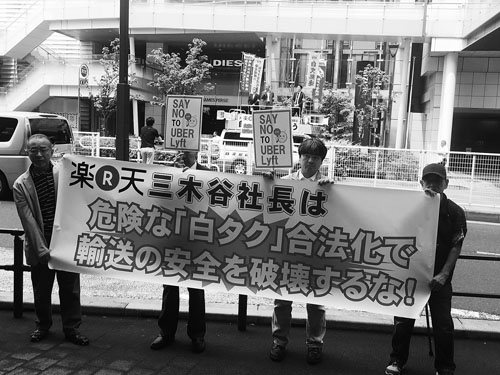 SAY
NO TO
UBER
Lyft
SAY
NO TO
UBER
Lyft
楽R天三木谷社長は
危険な「白タク」合法化で
輸送の安全を破壊するな!